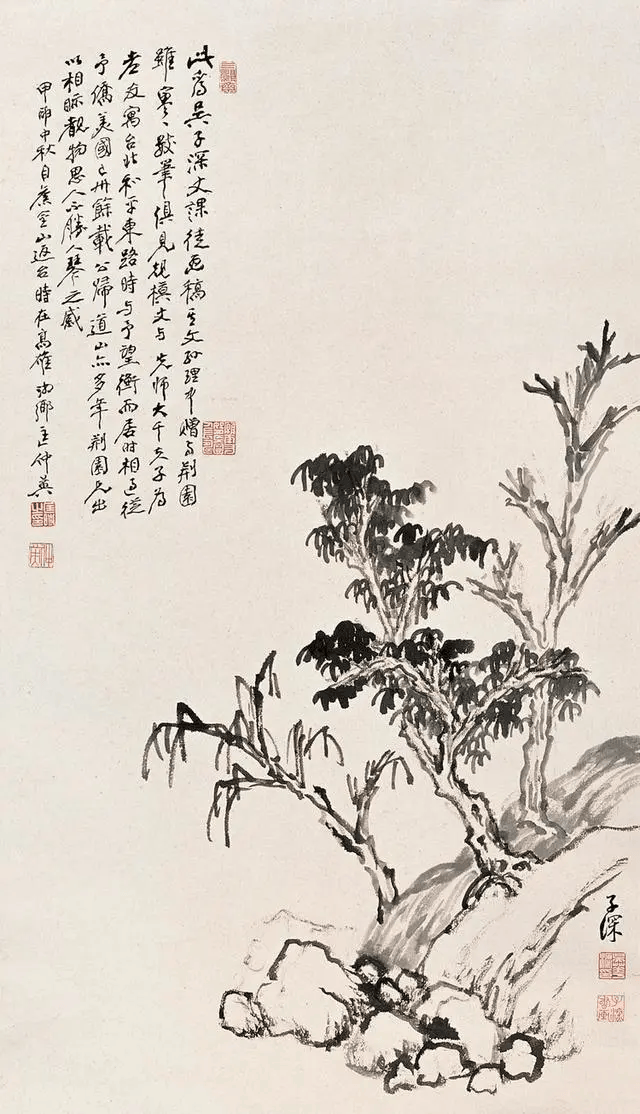 此為吳子深丈課徒画稿其文孙理中赠与荆園
雖寥〻数筆俱見規模丈与先师大千夫子為
老友寓台北和平東路時与予望衡而居时相過從
予僑美國已卅餘載公歸道山亦多年荆園兄出
以相眎覩物思人不勝人琴之感
甲申中秋自舊金山返台時在高雄 鄉匡仲英
子深